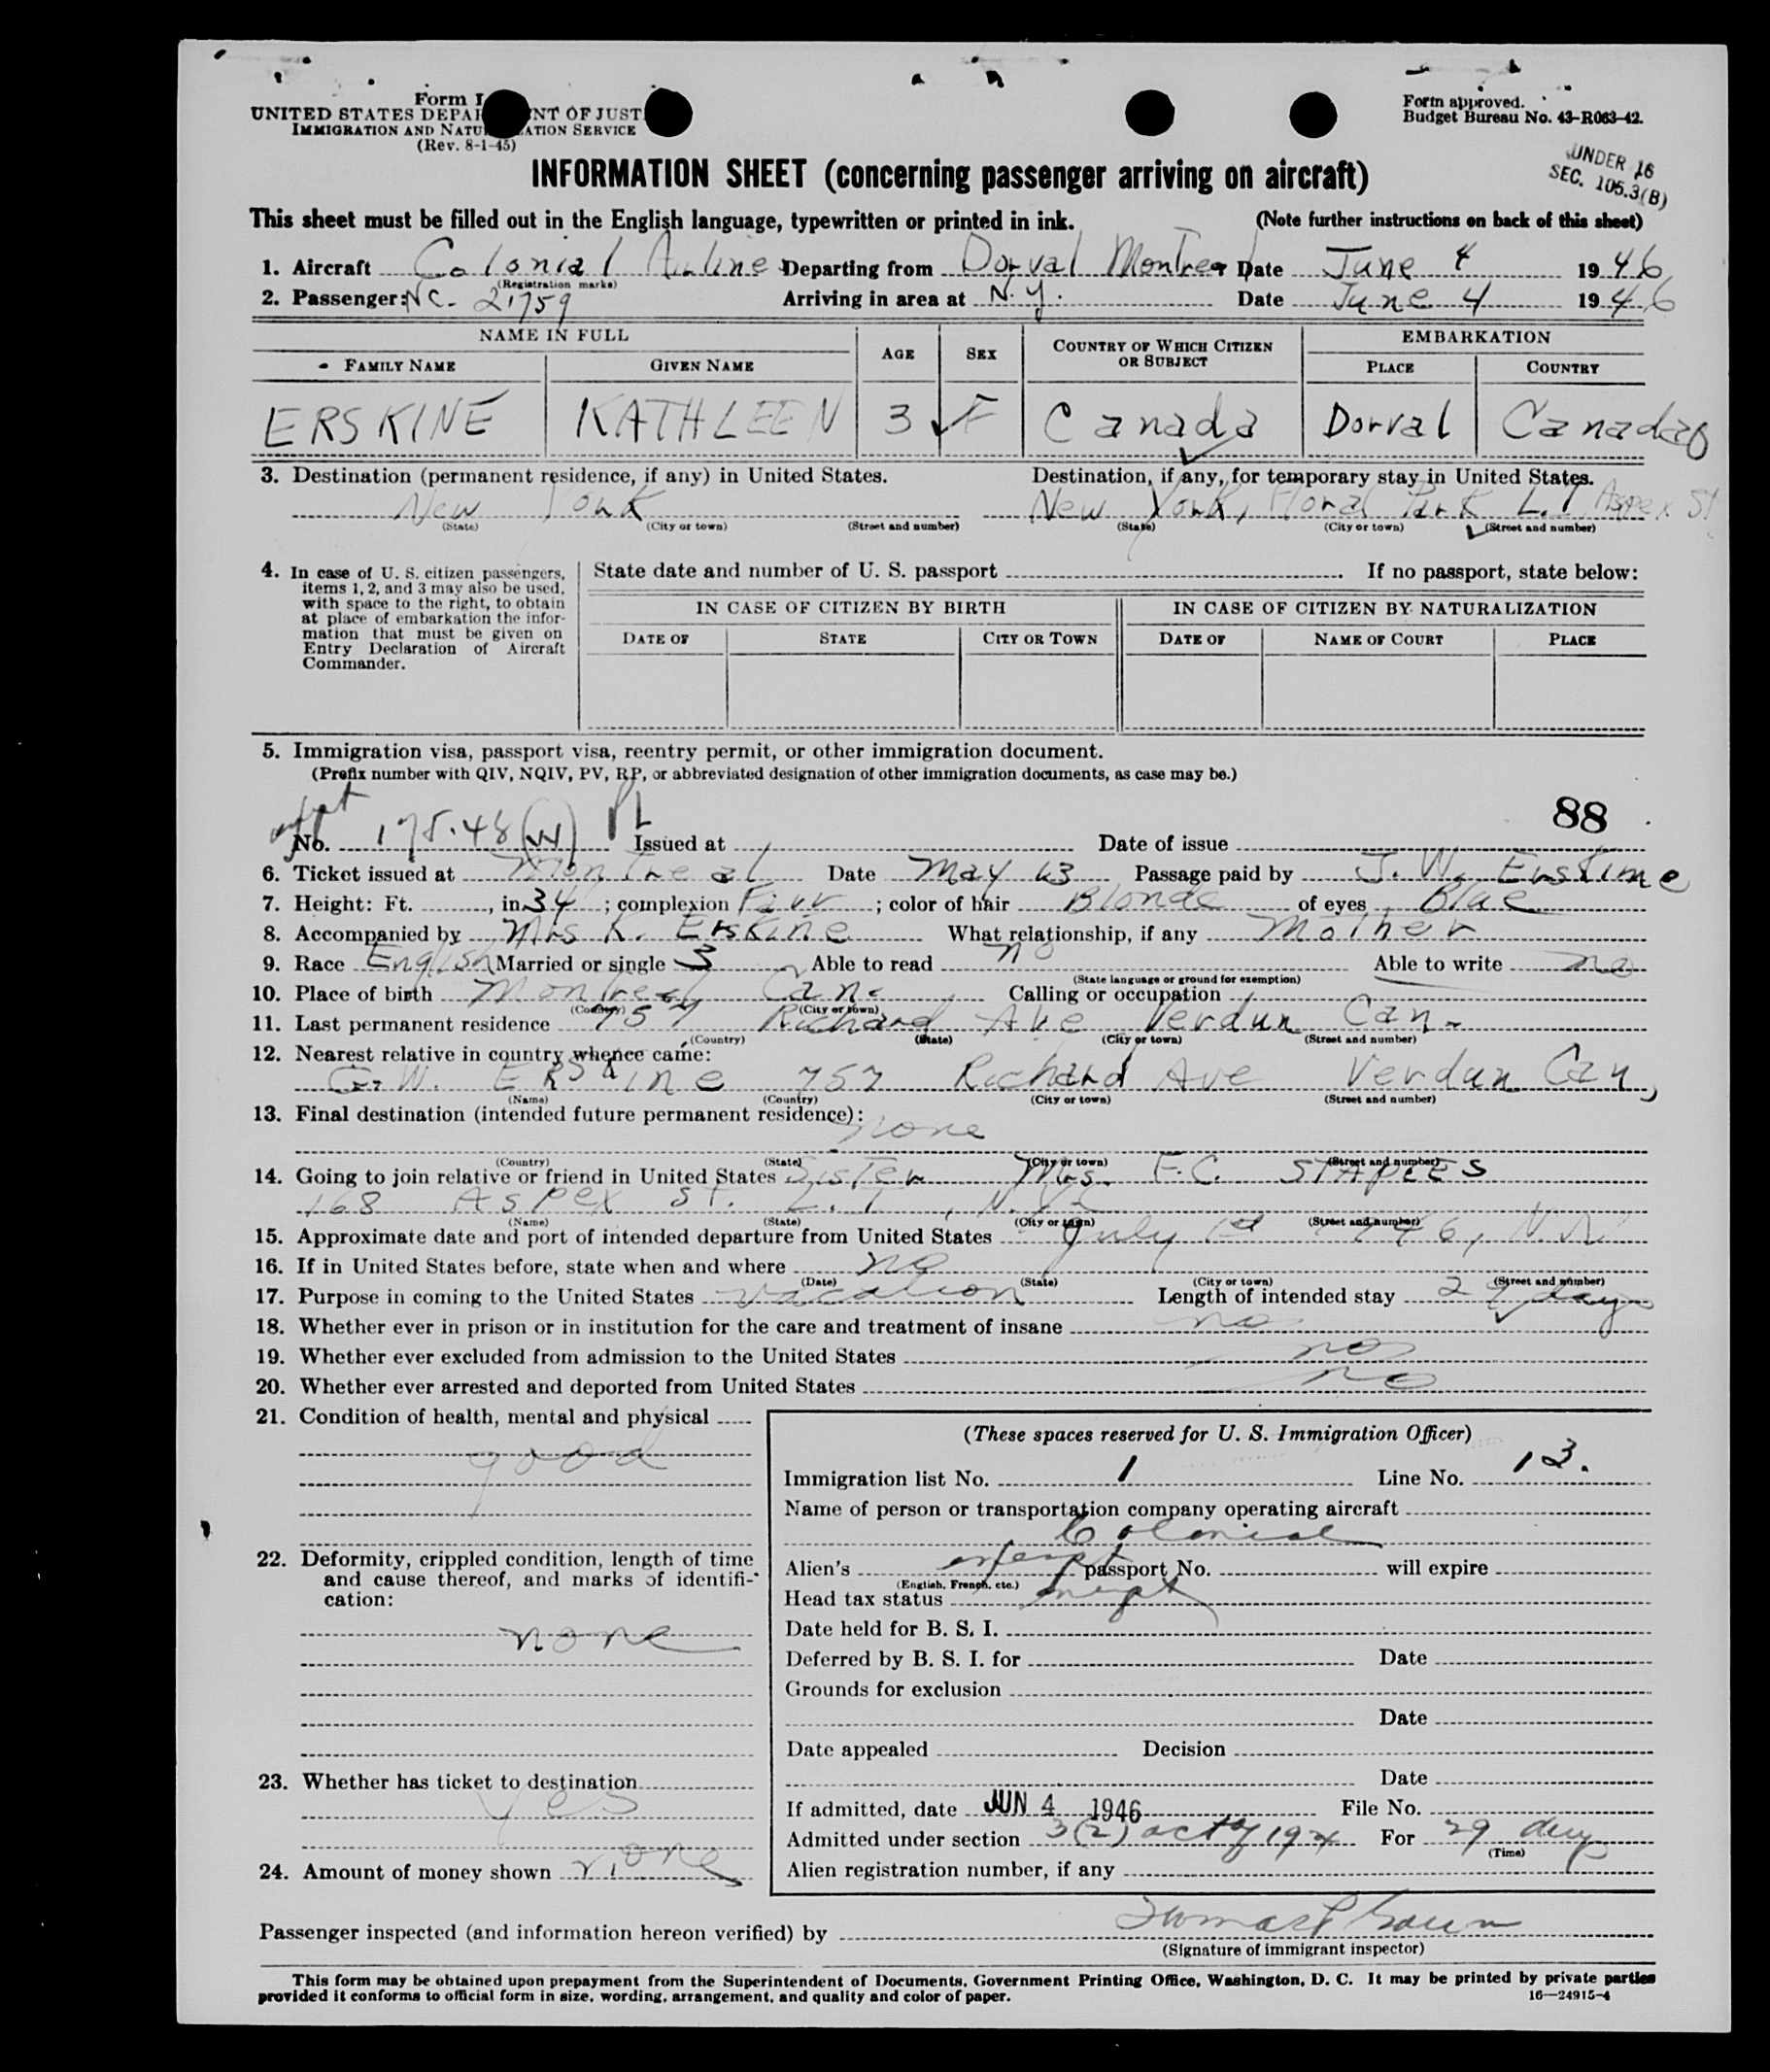 Form I
UNITED STATES DEPA NT OF JUST
IMMIGRATION AND NATU ATION SERVICE
(Rev. 8-1-45)
Form approved.
Budget Bureau No. 43-R063-42.
UNDER 16
SEC. 105.3(B)
INFORMATION SHEET (concerning passenger arriving on aircraft)
This sheet must be filled out in the English language, typewritten or printed in ink. (Note further instructions on back of this sheet)
1. Aircraft Colonial Airline Departing from Dorval Montreal Date June 4 1946
(Registration marks)
2. Passenger: NC- 21759 Arriving in area at N.Y. Date June 4 1946
NAME IN FULL AGE SEX COUNTRY OF WHICH CITIZEN OR SUBJECT EMBARKATION
FAMILY NAME GIVEN NAME PLACE COUNTRY
ERSKINE KATHLEEN 3 F Canada Dorval Canada
3. Destination (permanent residence, if any) in United States. Destination, if any, for temporary stay in United States.
New York New York, Floral Park L.I. Aspex St
(State) (City or town) (Street and number) (State) (City or town) (Street and number)
4. In case of U. S. citizen passengers, items 1, 2, and 3 may also be used, with space to the right, to obtain at place of embarkation the information that must be given on Entry Declaration of Aircraft Commander.
State date and number of U. S. passport . If no passport, state below:
IN CASE OF CITIZEN BY BIRTH IN CASE OF CITIZEN BY NATURALIZATION
DATE OF STATE CITY OR TOWN DATE OF NAME OF COURT PLACE
5. Immigration visa, passport visa, reentry permit, or other immigration document.
(Prefix number with QIV, NQIV, PV, RP, or abbreviated designation of other immigration documents, as case may be.)
88
No. 175.48(W) Issued at Date of issue
6. Ticket issued at Montreal Date May 23 Passage paid by J. W. Erskine
7. Height: Ft. , in. 34 ; complexion Fair ; color of hair Blonde of eyes Blue
8. Accompanied by Mrs K. Erskine What relationship, if any Mother
9. Race English Married or single S Able to read no Able to write no
(State language or ground for exemption)
10. Place of birth Montreal Can. Calling or occupation
(Country) (City or town)
11. Last permanent residence 757 Richard Ave Verdun Can.
(Country) (State) (City or town) (Street and number)
12. Nearest relative in country whence came:
G.W. ERSKINE 757 Richard Ave Verdun Can,
(Name) (Country) (City or town) (Street and number)
13. Final destination (intended future permanent residence):
none
(Country) (State) (City or town) (Street and number)
14. Going to join relative or friend in United States Sister Mrs. F.C. STAPLES
168 Aspex St. L.I., N.Y.
(Name) (State) (City or town) (Street and number)
15. Approximate date and port of intended departure from United States July 1st 1946, N.Y.
16. If in United States before, state when and where no
(Date) (State) (City or town) (Street and number)
17. Purpose in coming to the United States vacation Length of intended stay 29 days
18. Whether ever in prison or in institution for the care and treatment of insane no
19. Whether ever excluded from admission to the United States no
20. Whether ever arrested and deported from United States no
21. Condition of health, mental and physical
good
22. Deformity, crippled condition, length of time and cause thereof, and marks of identification:
none
23. Whether has ticket to destination
yes
24. Amount of money shown none
(These spaces reserved for U. S. Immigration Officer)
Immigration list No. 1 Line No. 13.
Name of person or transportation company operating aircraft
Colonial
Alien's exempt passport No. will expire
(English, French, etc.)
Head tax status exempt
Date held for B. S. I.
Deferred by B. S. I. for Date
Grounds for exclusion
Date
Date appealed Decision
Date
If admitted, date JUN 4 1946 File No.
Admitted under section 3(2) act of 1924 For 29 days
(Time)
Alien registration number, if any
Passenger inspected (and information hereon verified) by
(Signature of immigrant inspector)
This form may be obtained upon prepayment from the Superintendent of Documents, Government Printing Office, Washington, D. C. It may be printed by private parties
provided it conforms to official form in size, wording, arrangement, and quality and color of paper.
16—24915-4